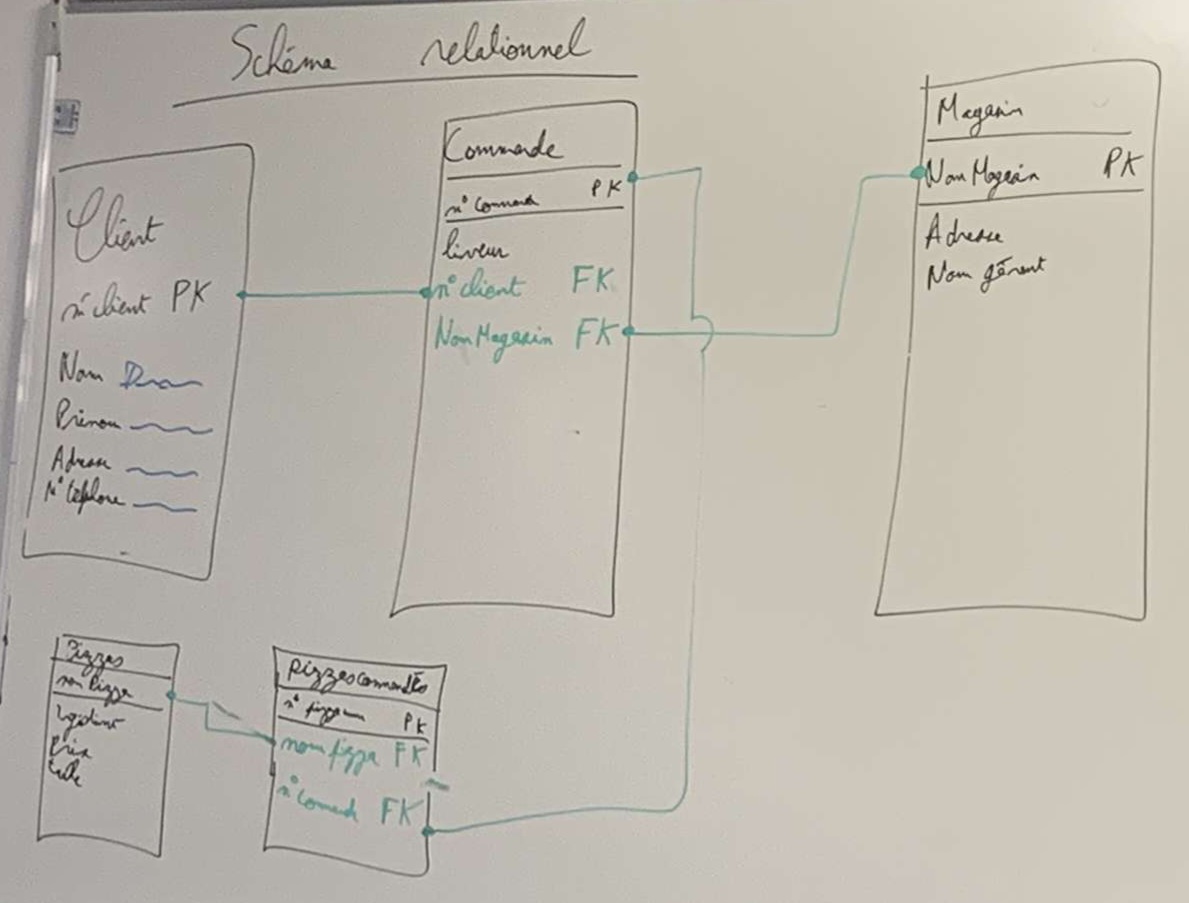 Schéma relationnel
Client
n° client PK
Nom
Prénom
Adresse
N° téléphone
Commande
n° command PK
livreur
n° client FK
Nom Magasin FK
Magasin
Nom Magasin PK
Adresse
Nom gérant
Pizzas
nom Pizza
Prix
taille
Pizzas commandés
n° PK
nom pizza FK
n° command FK